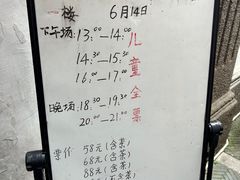 一楼 6月14日
下午场: 13:00—14:00
14:30—15:30
16:00—17:00
晚场: 18:30—19:30
20:00—21:00
儿童全票
票价 58元(含茶)
68元(含茶)
88元(含茶)